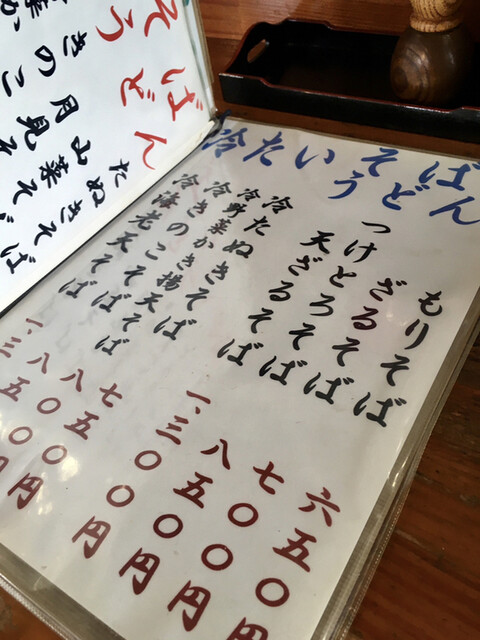 冷たいそば
うどん
もりそば
ざるそば
つけとろそば
天ざるそば
冷たぬきそば
冷野菜かき揚天そば
冷きのこそば
冷海老天そば
六五〇円
七〇〇円
八五〇円
一、三〇〇円
七五〇円
八〇〇円
そば
うどん
たぬきそば
山菜そば
月見そ
きのこ